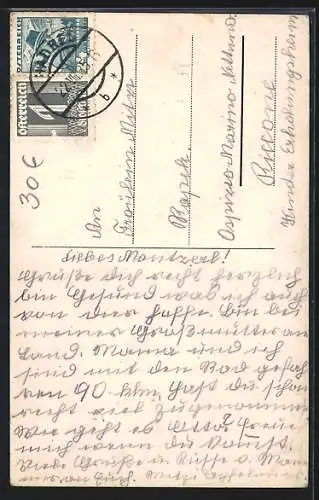 ÖSTERREICH
Österreich
1
b
30€
An
Fräulein Mitzi
Ospizio Marino Austriaco
Kinder Erholungsheim
Liebes Mautzerl!
Grüße dich recht herzlich
bin Gesund was ich auch
von dier hoffe. bin bei
meiner Großmutter am
Land. Mama und ich
sind mit den Rad gefah
ren 90 klm. hast du schon
recht viel zugenommen
Wie geht es Otto? Freue
mich wenn du kommst.
Viele Grüße u. Küsse v. Mama
Mitzi